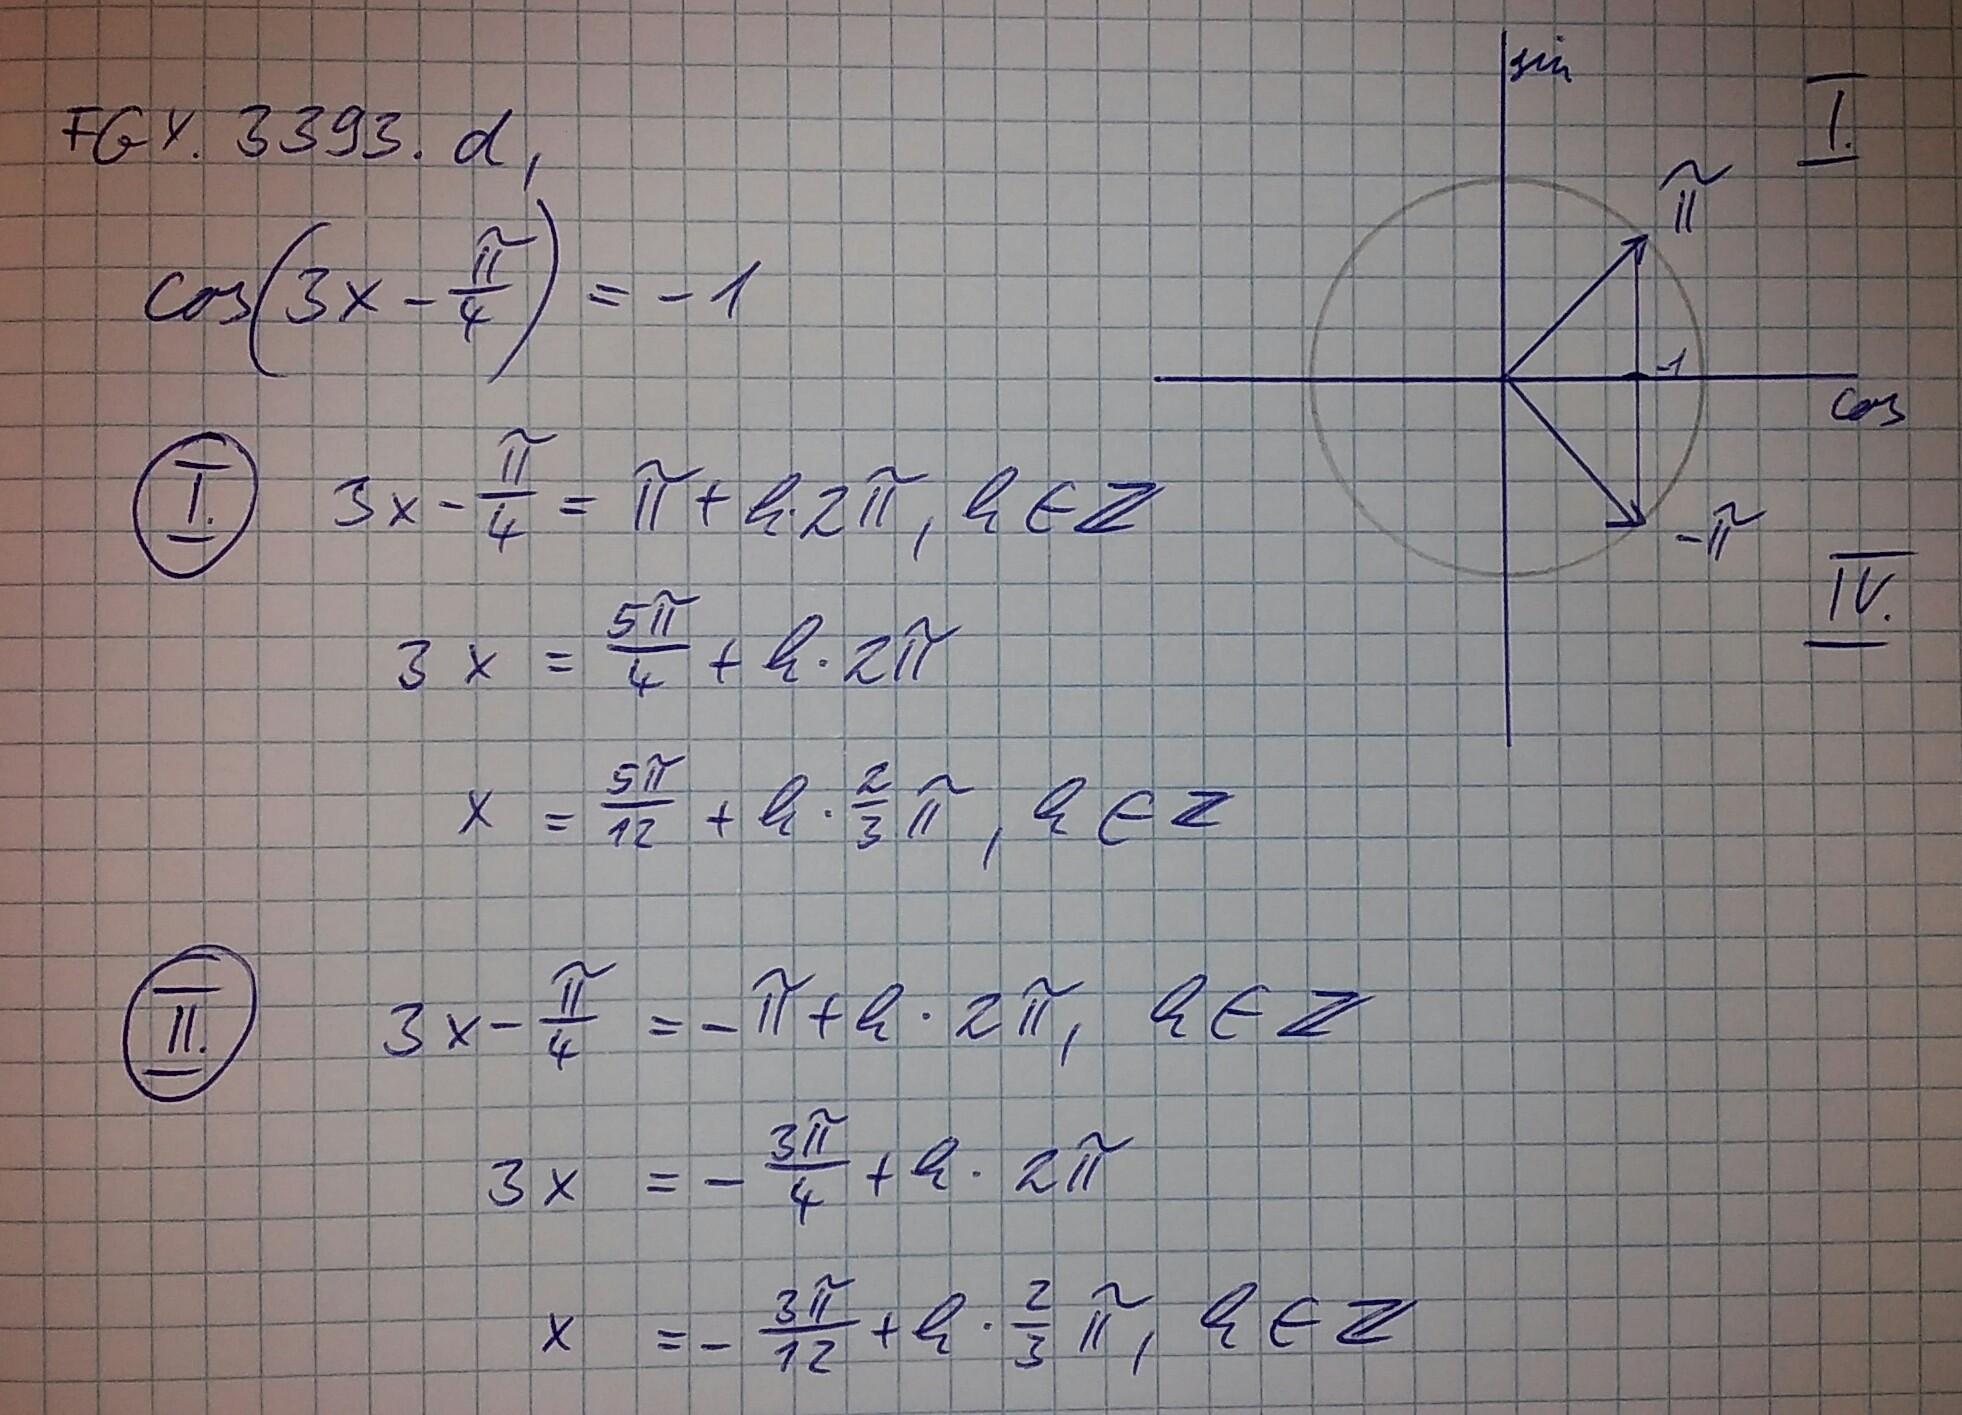 FGY. 3393. d,
cos(3x - π/4) = -1
I. 3x - π/4 = π + k·2π, k ∈ Z
3x = 5π/4 + k·2π
x = 5π/12 + k·2/3 π, k ∈ Z
II. 3x - π/4 = -π + k·2π, k ∈ Z
3x = -3π/4 + k·2π
x = -3π/12 + k·2/3 π, k ∈ Z
sin
I.
π
-1
cos
-π
IV.